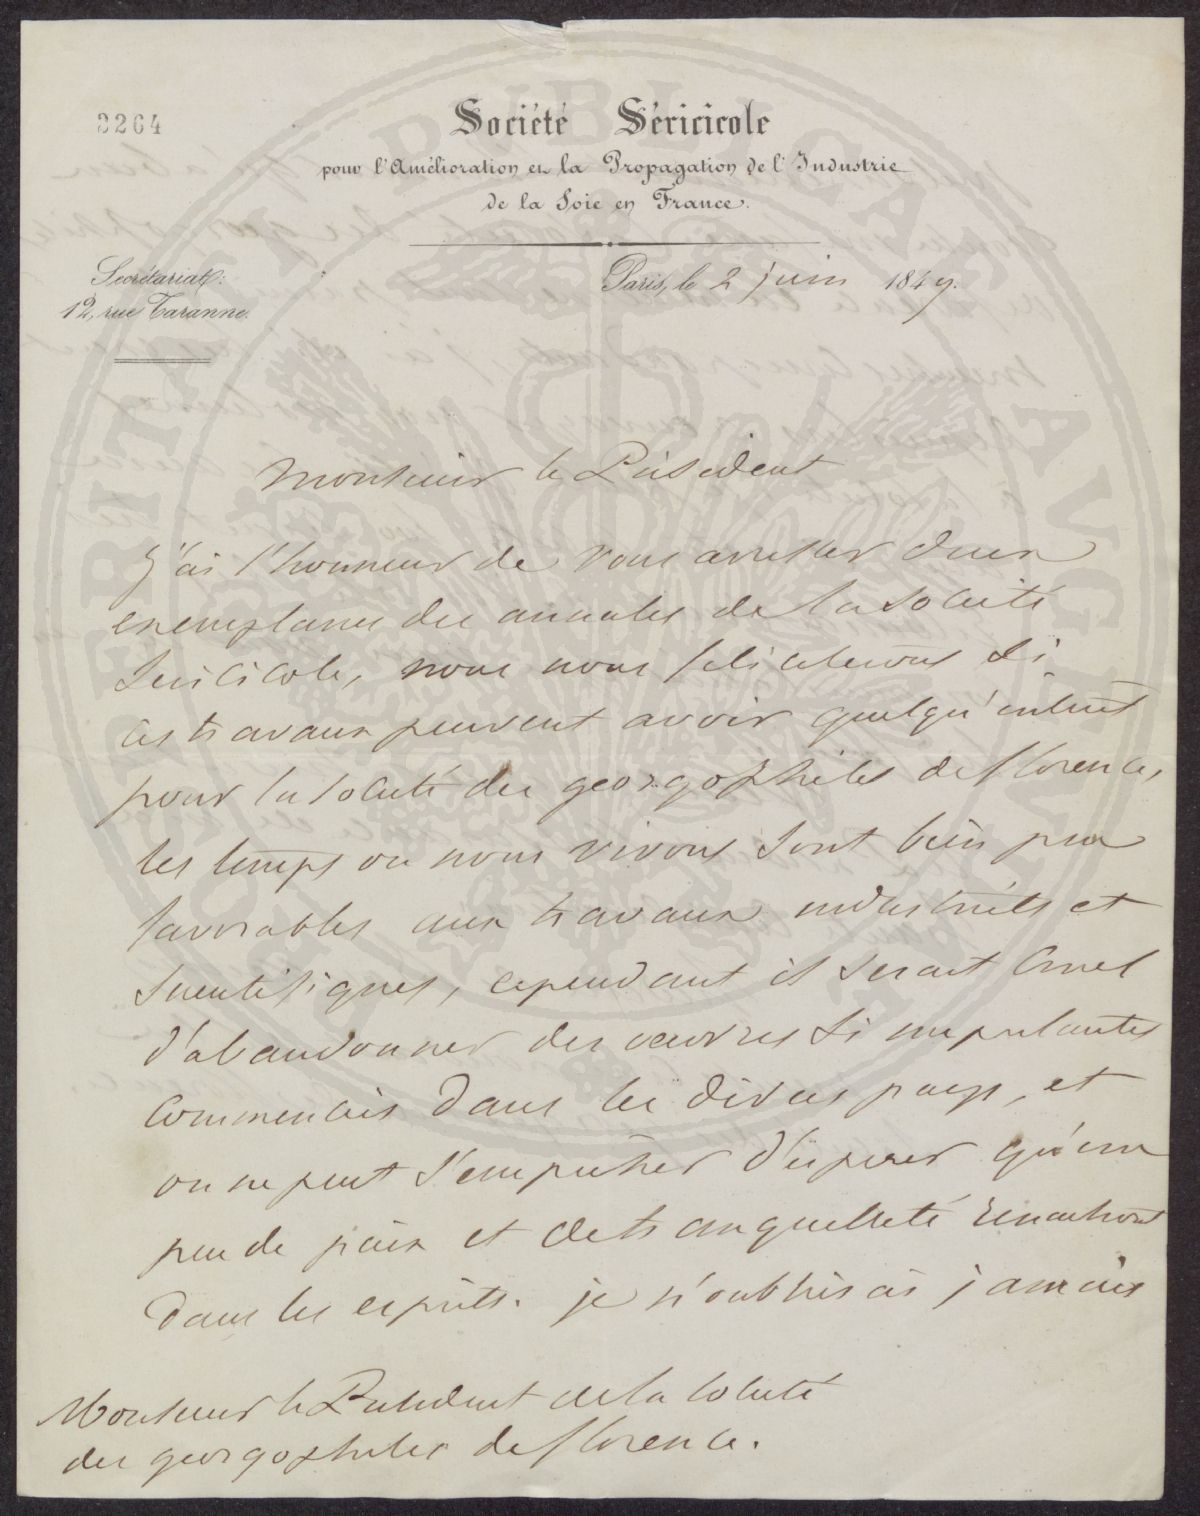 3264
Société Séricicole
pour l'Amélioration et la Propagation de l'Industrie
de la Soie en France.
Secrétariat:
12, rue Taranne.
Paris, le 2 juin 1849.
Monsieur le Président
J'ai l'honneur de vous adresser deux
exemplaires des annales de la Société
Sericicole, nous nous feliciterons si
ces travaux peuvent avoir quelqu'intérêt
pour la société des georgophiles de florence,
les temps ou nous vivons sont bien peu
favorables aux travaux industriels et
scientifiques, cependant il serait cruel
d'abandonner des œuvres si importantes
commencées dans les divers pays, et
on ne peut s'empêcher d'esperer qu'un
peu de paix et de tranquillité renaitront
dans les esprits. je n'oublierai jamais
Monsieur le Président de la société
des georgophiles de florence.
APERITAE PUBLICAE FRVGIBVS